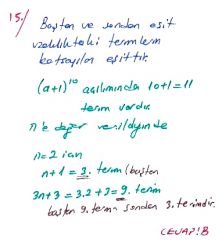 15./ Baştan ve sondan eşit
uzaklıktaki terimlerin
katsayıları eşittir.
(a+1)¹⁰ açılımında 10+1=11
terim vardır.
n'e değer verildiğinde
n=2 için
n+1=3. terim (baştan
3n+3=3.2+3=9. terim
baştan 9. terim sondan 3. terimdir.
CEVAP:B